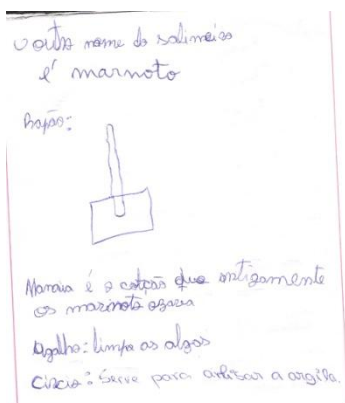 O outro nome do salineiro
é marnoto
Rapão:
é o calção que antigamente
os marinoto
limpa as algas
Círcio: Serve para alisar a argila.